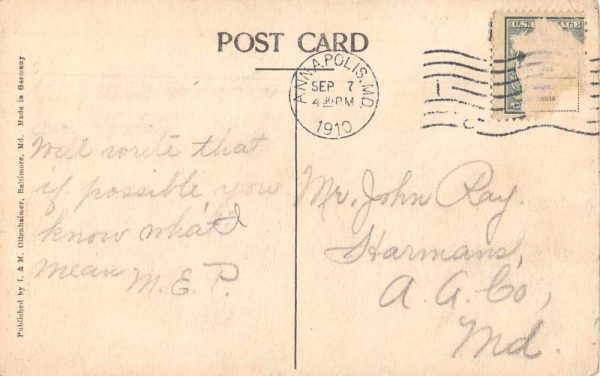 POST CARD
ANNAPOLIS, MD.
SEP 7
4 30 PM
1910
Will write that
if possible you
know what I
mean M.E.P.
Mr. John Ray.
Harmans,
A. A. Co,
Md.
Published by I. & M. Ottenheimer, Baltimore, Md. Made in Germany